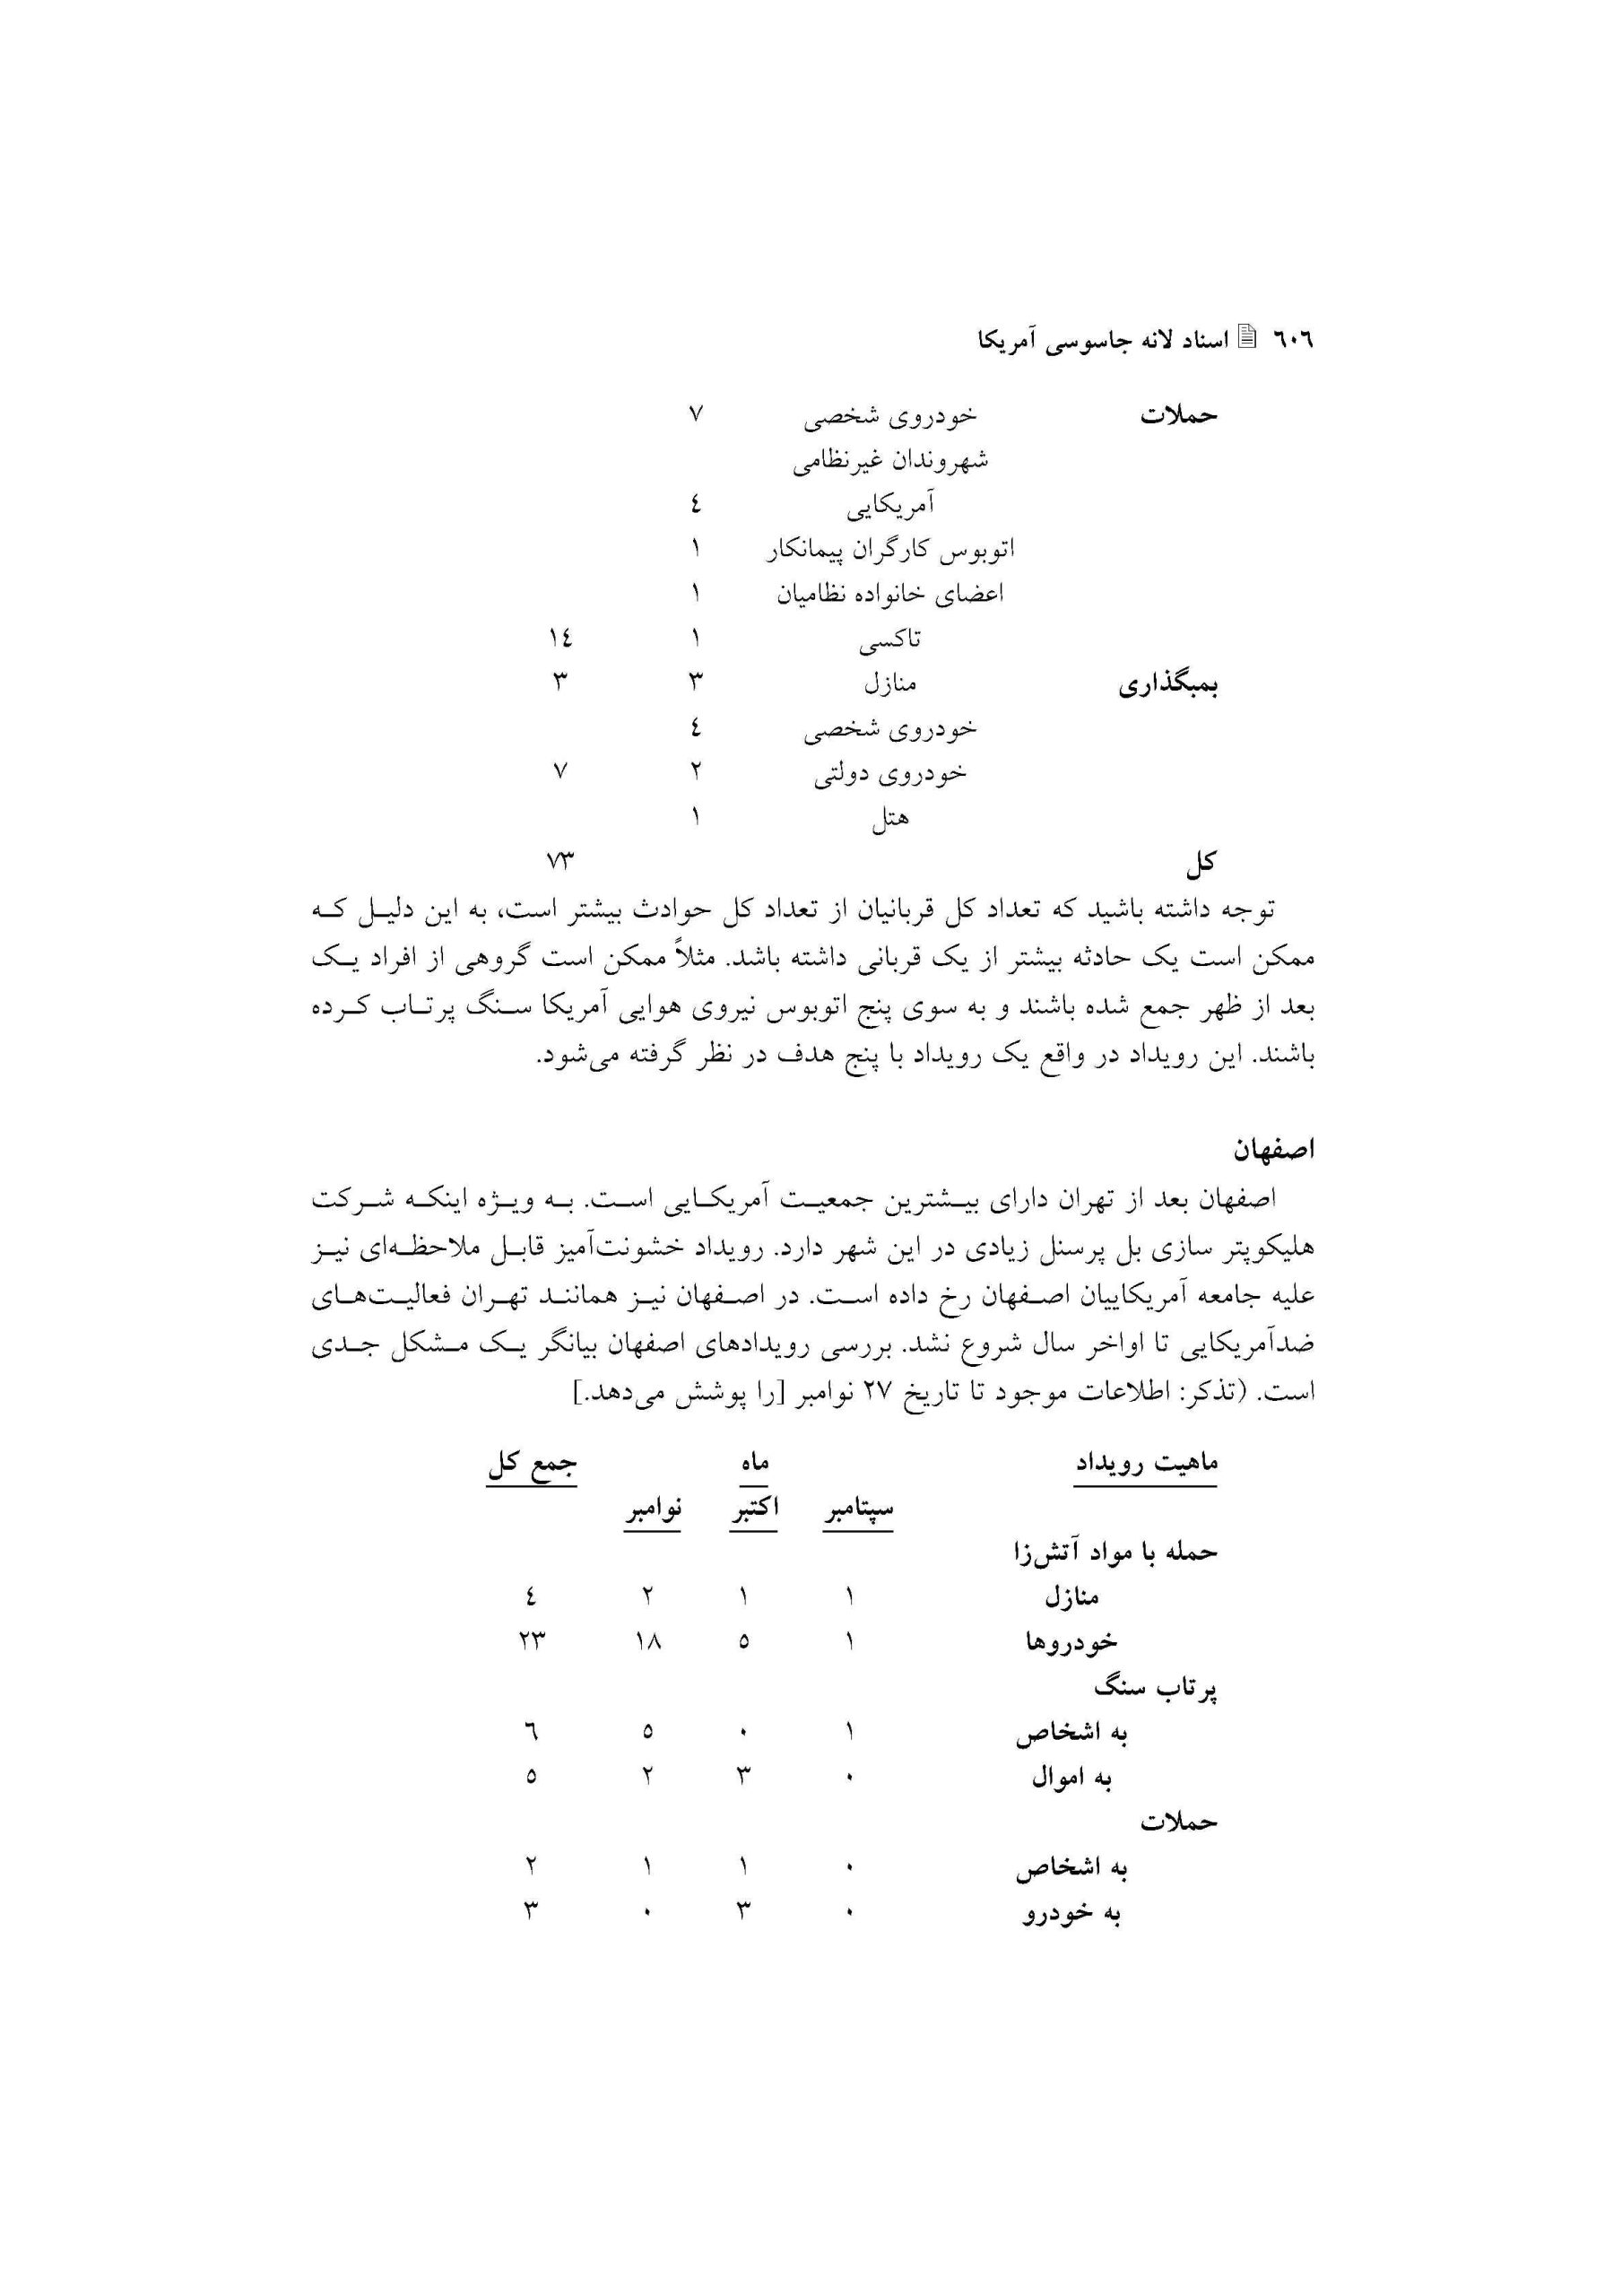 ٦٠٦ اسناد لانه جاسوسی آمریکا
حملات خودروی شخصی ٧
شهروندان غیرنظامی
آمریکایی ٤
اتوبوس کارگران پیمانکار ١
اعضای خانواده نظامیان ١
تاکسی ١ ١٤
بمبگذاری منازل ٣ ٣
خودروی شخصی ٤
خودروی دولتی ٢ ٧
هتل ١
کل ٧٣
توجه داشته باشید که تعداد کل قربانیان از تعداد کل حوادث بیشتر است، به این دلیل که
ممکن است یک حادثه بیشتر از یک قربانی داشته باشد. مثلاً ممکن است گروهی از افراد یک
بعد از ظهر جمع شده باشند و به سوی پنج اتوبوس نیروی هوایی آمریکا سنگ پرتاب کرده
باشند. این رویداد در واقع یک رویداد با پنج هدف در نظر گرفته می‌شود.
اصفهان
اصفهان بعد از تهران دارای بیشترین جمعیت آمریکایی است. به ویژه اینکه شرکت
هلیکوپتر سازی بل پرسنل زیادی در این شهر دارد. رویداد خشونت‌آمیز قابل ملاحظه‌ای نیز
علیه جامعه آمریکاییان اصفهان رخ داده است. در اصفهان نیز همانند تهران فعالیت‌های
ضدآمریکایی تا اواخر سال شروع نشد. بررسی رویدادهای اصفهان بیانگر یک مشکل جدی
است. (تذکر: اطلاعات موجود تا تاریخ ٢٧ نوامبر [را پوشش می‌دهد.]
ماهیت رویداد ماه جمع کل
سپتامبر اکتبر نوامبر
حمله با مواد آتش‌زا
منازل ١ ١ ٢ ٤
خودروها ١ ٥ ١٨ ٢٣
پرتاب سنگ
به اشخاص ١ ٠ ٥ ٦
به اموال ٠ ٣ ٢ ٥
حملات
به اشخاص ٠ ١ ١ ٢
به خودرو ٠ ٣ ٠ ٣